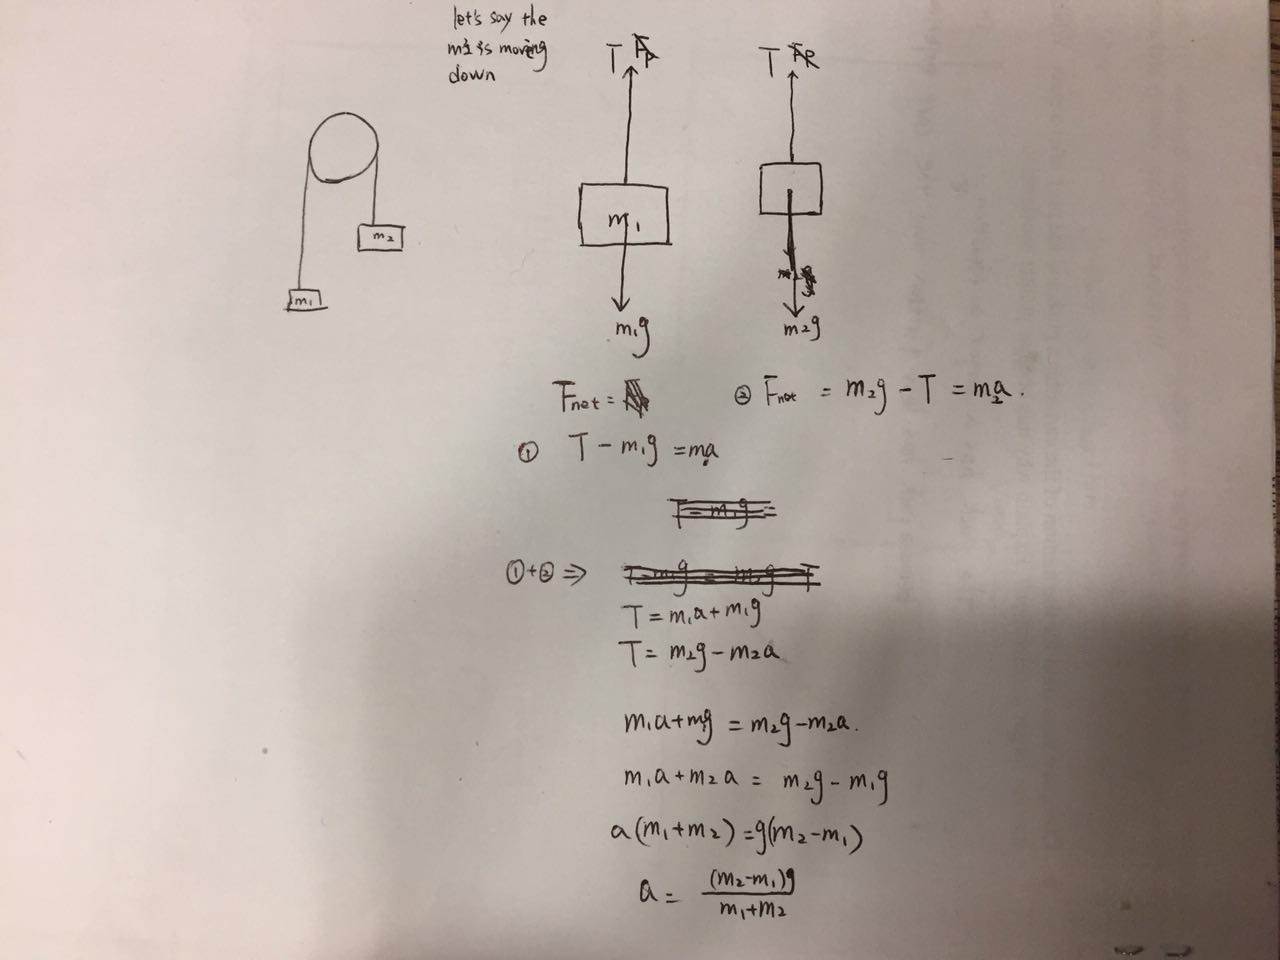 let's say the
m2 is moving
down
T
T
m1
m2
m1
m1g
m2g
Fnet =
② Fnet = m2g - T = m2a.
① T - m1g = ma
T - m1g =
①+② ⇒
T = m1a + m1g
T = m2g - m2a
m1a + m1g = m2g - m2a.
m1a + m2a = m2g - m1g
a(m1+m2) = g(m2-m1)
a = (m2-m1)g
m1+m2